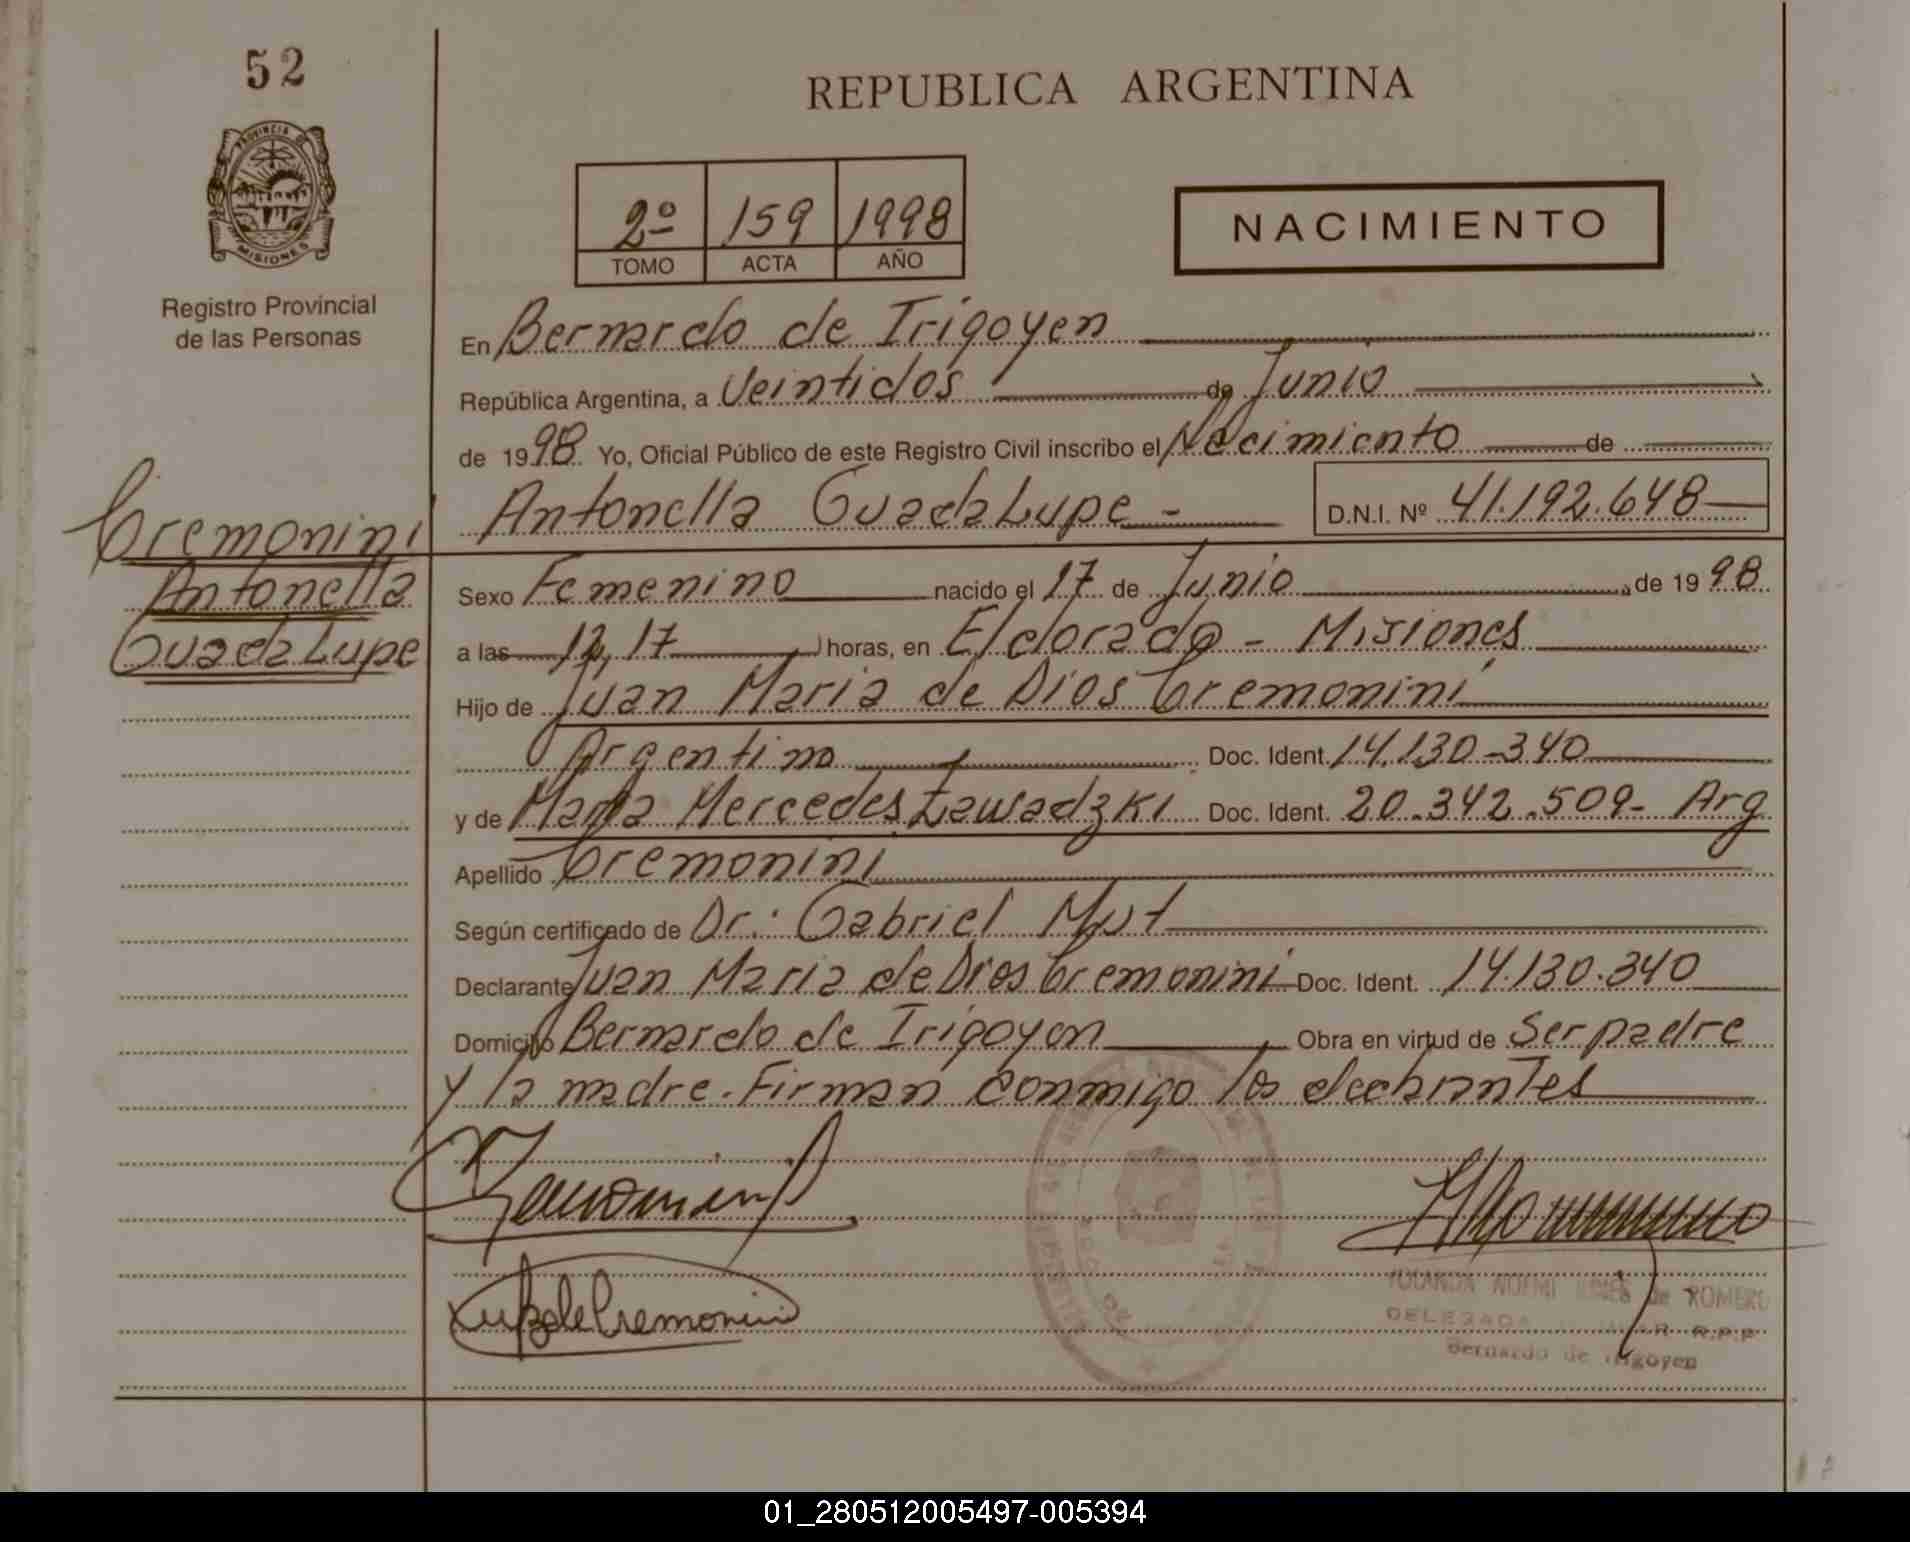 52
PROVINCIA DE
MISIONES
Registro Provincial
de las Personas
REPUBLICA ARGENTINA
2º 159 1998
TOMO ACTA AÑO
NACIMIENTO
En Bernardo de Irigoyen
República Argentina, a Veintidos de Junio
de 1998 Yo, Oficial Público de este Registro Civil inscribo el Nacimiento de
Antonella Guadalupe - D.N.I. Nº 41.192.648
Cremonini
Antonella
Guadalupe
Sexo Femenino nacido el 17 de Junio, de 1998
a las 12,17 horas, en Eldorado - Misiones
Hijo de Juan Maria de Dios Cremonini
Argentino Doc. Ident. 14.130-340
y de Maria Mercedes Zawadzki Doc. Ident. 20.342.509- Arg
Apellido Cremonini
Según certificado de Dr: Gabriel
Declarante Juan Maria de Dios Cremonini Doc. Ident. 14.130.340
Domicilio Bernardo de Irigoyen Obra en virtud de Ser padre
y la madre. Firman conmigo los declarantes
de Cremonini
YOLANDA NOEMI de ROMERO
DELEGADA R.P.P
Bernardo de Irigoyen
01_280512005497-005394